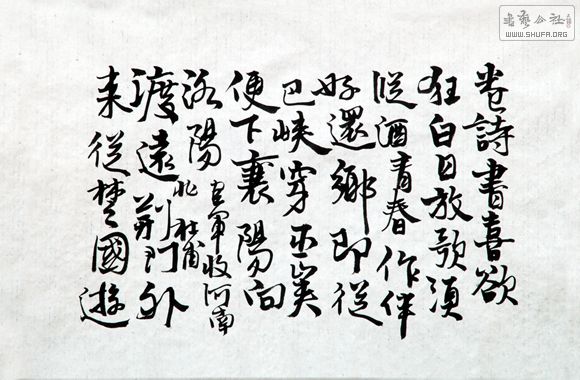 卷詩書喜欲
狂白日放歌須
縱酒青春作伴
好還鄉即從
巴峽穿巫峽
便下襄陽向
洛陽
官軍收河南
北杜甫
渡遠荊門外
来從楚國遊
書藝公社
WWW.SHUFA.ORG